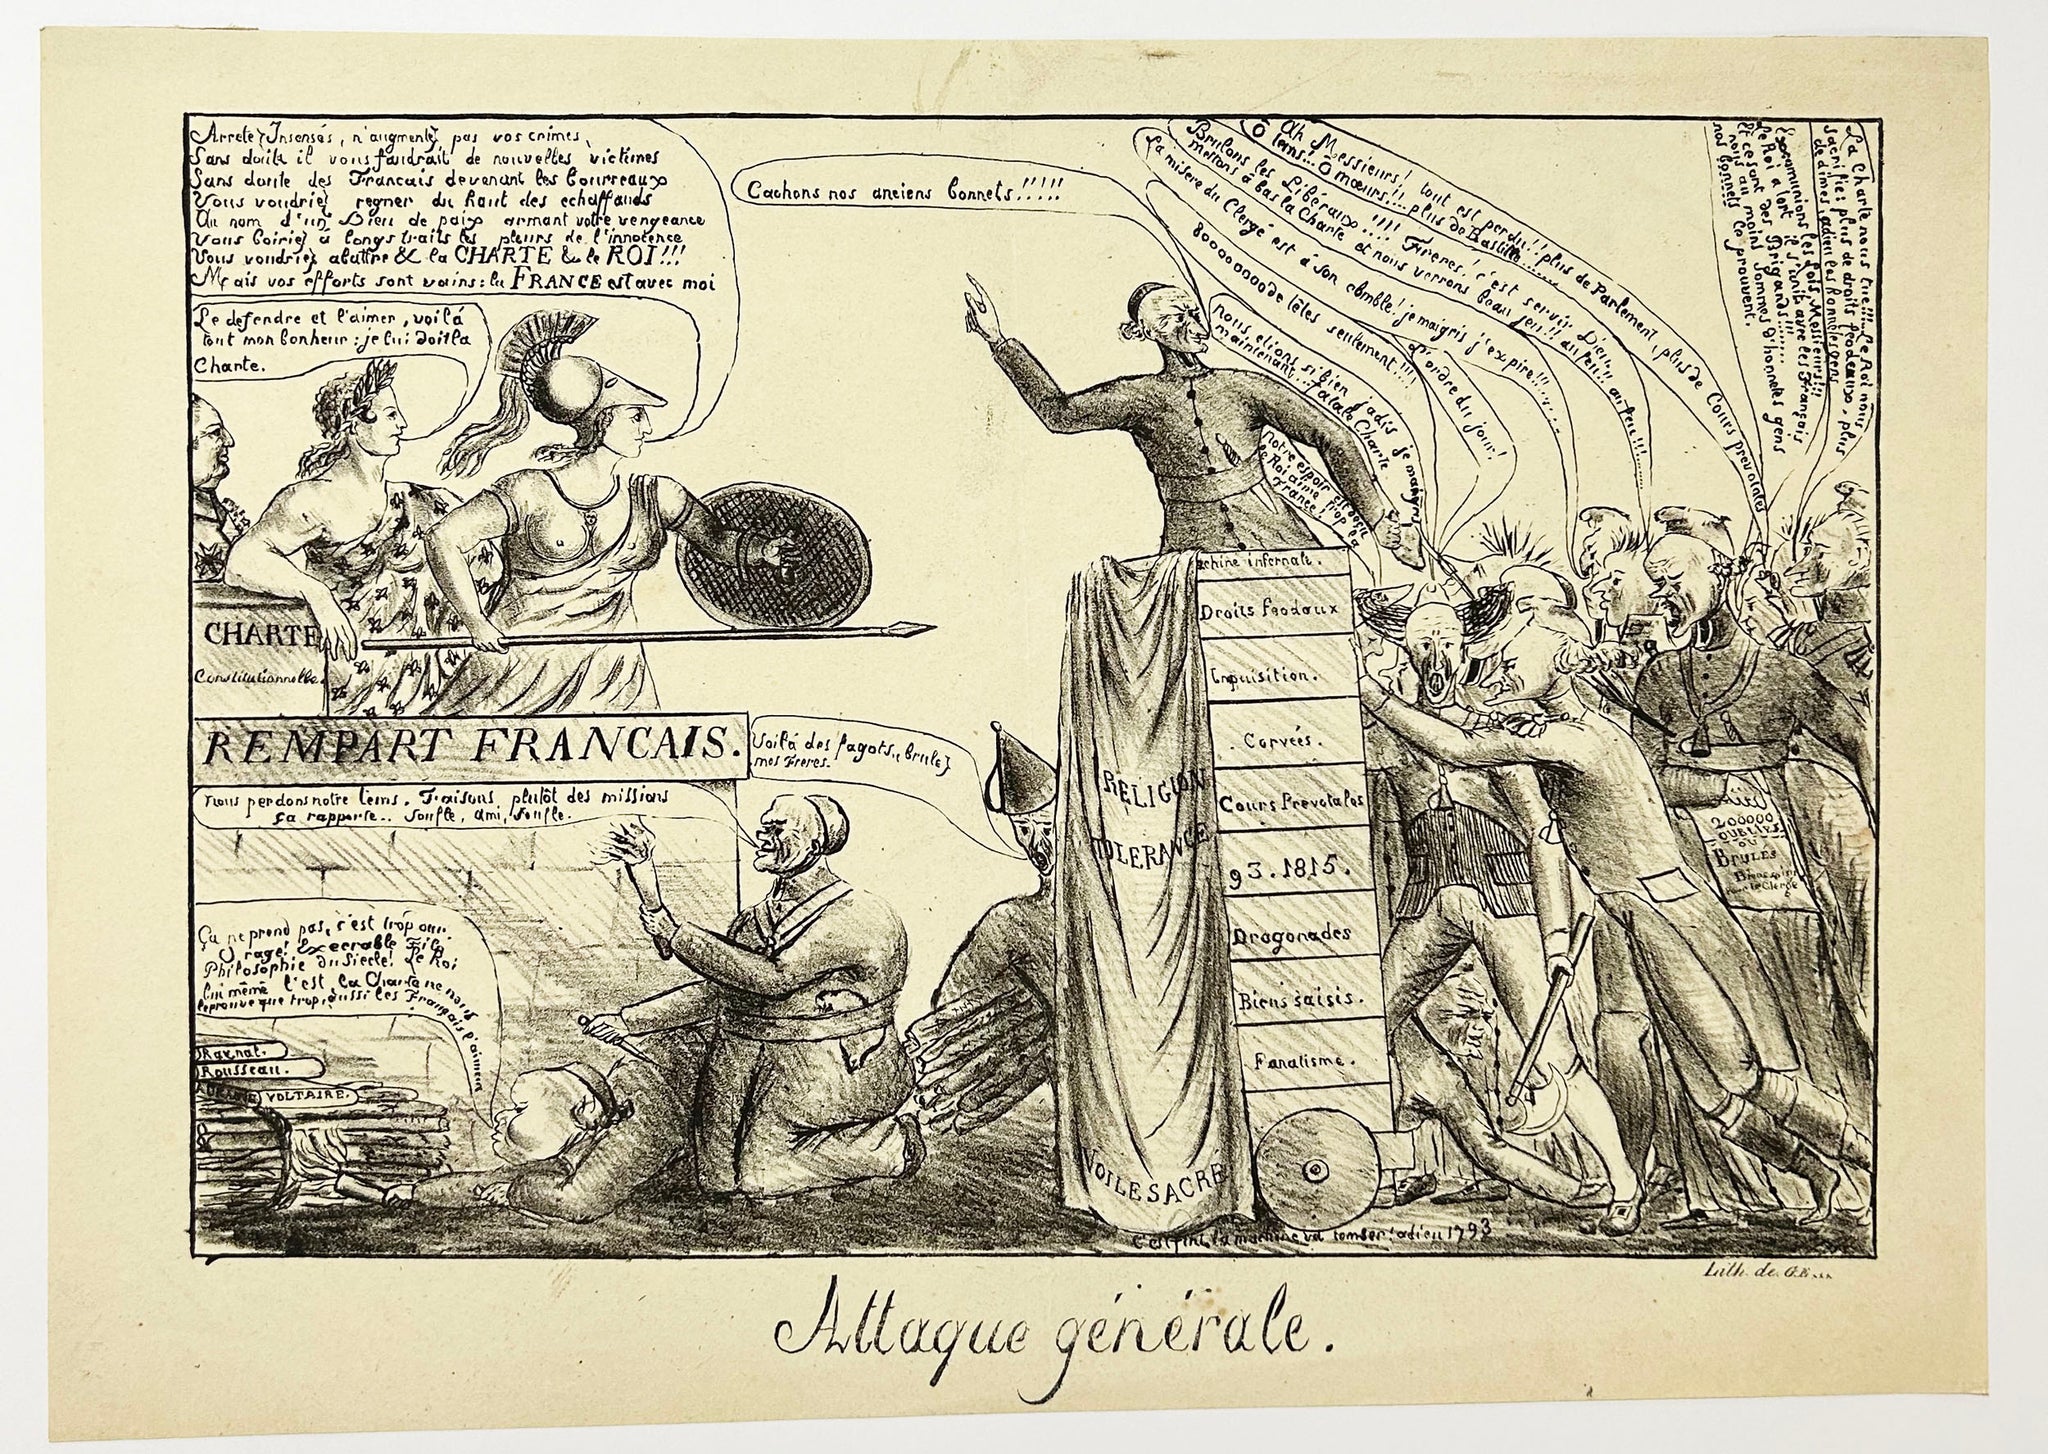 Arretez Insensés, n'augmentez pas vos crimes,
Sans doute il vous faudrait de nouvelles victimes
Sans doute des Francais devenant les bourreaux
Vous voudriez regner du haut des echaffauds
Au nom d'un Dieu de paix armant votre vengeance
Vous boiriez à longs traits les pleurs de l'innocence
Vous voudriez abattre & la CHARTE & le ROI!!!
Mais vos efforts sont vains: la FRANCE est avec moi
Le defendre et l'aimer, voilà
tout mon bonheur: je lui dois la
Charte.
Cachons nos anciens bonnets!!!!!
Ah Messieurs! tout est perdu!! plus de Parlement, plus de Cours prevotales
Ô tems!.. Ô mœurs!!... plus de Bastille
Brulons les Libéraux!!!! Freres! c'est servir Dieu!! au feu!! au feu!!!
mettons à bas la Charte et nous verrons beau jeu!!
La misere du Clergé est à son comble! je maigris j'expire!!!
800000000 de têtes seulement!!!!
L'ordre du jour!
nous etions si bien jadis je maigris
maintenant... Fatale Charte
notre espoir est deçu
le Roi aime trop la
France!
La Charte nous tue!!! Le Roi nous
sacrifie: plus de droits féodeaux, plus
de dimes, adieu les honnetes gens
Excommunions les fois, Messieurs!!!
le Roi a tort il s'unit avec les Français
et ce sont des Brigands!!!
nous au moins sommes d'honnetes gens
nos bonnets le prouvent.
CHARTE
Constitutionnelle.
REMPART FRANCAIS.
Voilà des fagots.. brulez
mes Freres.
nous perdons notre tems. Faisons plutôt des missions
ça rapporte.. souffle, ami, souffle.
Ça ne prend pas, c'est trop dur.
O rage! Execrable Fils
Philosophie du siecle! Le Roi
lui même l'est, la Charte ne nous
le prouve que trop, aussi les Français l'aiment
Raynal.
Rousseau.
VOLTAIRE.
achine infernale.
Droits feodaux
Inquisition.
Corvées.
Cours Prevotales
93. 1815.
Dragonades
Biens saisis.
Fanatisme.
RELIGION
TOLERANCE
VOILE SACRÉ
200000
OUBLIÉS
OU
BRULÉS
par le Clergé
C'est fini, la machine va tomber: adieu 1793
Lith. de G.E...
Attaque générale.